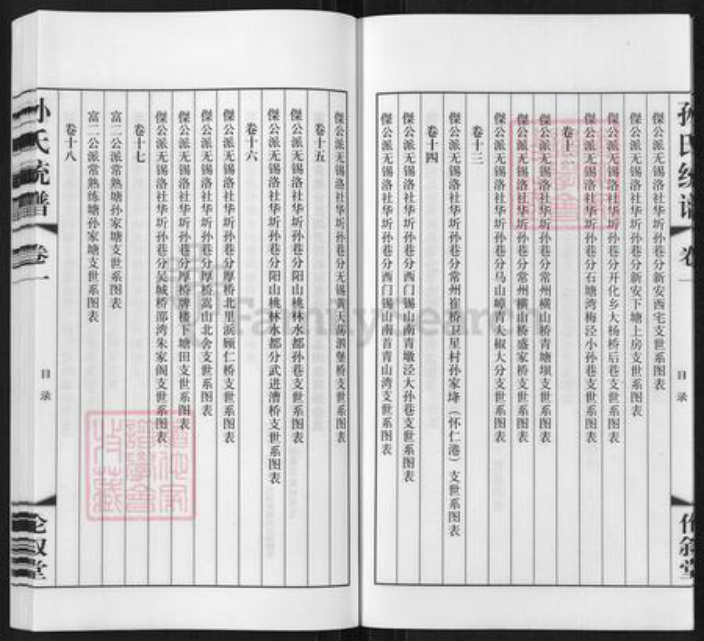 孙氏统谱 卷一
目录
傑公派无锡洛社华圻孙巷分新安西宅支世系图表
傑公派无锡洛社华圻孙巷分新安下塘上房支世系图表
傑公派无锡洛社华圻孙巷分开化乡大杨桥后巷支世系图表
傑公派无锡洛社华圻孙巷分石塘湾梅泾小孙巷支世系图表
卷十二
傑公派无锡洛社华圻孙巷分常州横山桥青塘坝支世系图表
傑公派无锡洛社华圻孙巷分常州横山桥盛家桥支世系图表
傑公派无锡洛社华圻孙巷分马山嶂青大椒大分支世系图表
卷十三
傑公派无锡洛社华圻孙巷分常州崔桥卫星村孙家垾（怀仁港）支世系图表
卷十四
傑公派无锡洛社华圻孙巷分西门锡山南青墩泾大孙巷支世系图表
傑公派无锡洛社华圻孙巷分西门锡山南首青山湾支世系图表
傑公派无锡洛社华圻孙巷分无锡黄天荡泗堡桥支世系图表
卷十五
傑公派无锡洛社华圻孙巷分阳山桃林水都孙巷支世系图表
傑公派无锡洛社华圻孙巷分阳山桃林水都分武进漕桥支世系图表
卷十六
傑公派无锡洛社华圻孙巷分厚桥北里浜顾仁桥支世系图表
傑公派无锡洛社华圻孙巷分厚桥嵩山北舍支世系图表
傑公派无锡洛社华圻孙巷分厚桥牌楼下塘田支世系图表
傑公派无锡洛社华圻孙巷分吴城桥邵湾朱家阁支世系图表
卷十七
富二公派常熟塘孙家塘支世系图表
富二公派常熟练塘孙家塘支世系图表
卷十八
孙氏统谱 卷一
目录
伦叙堂
FamilySearch